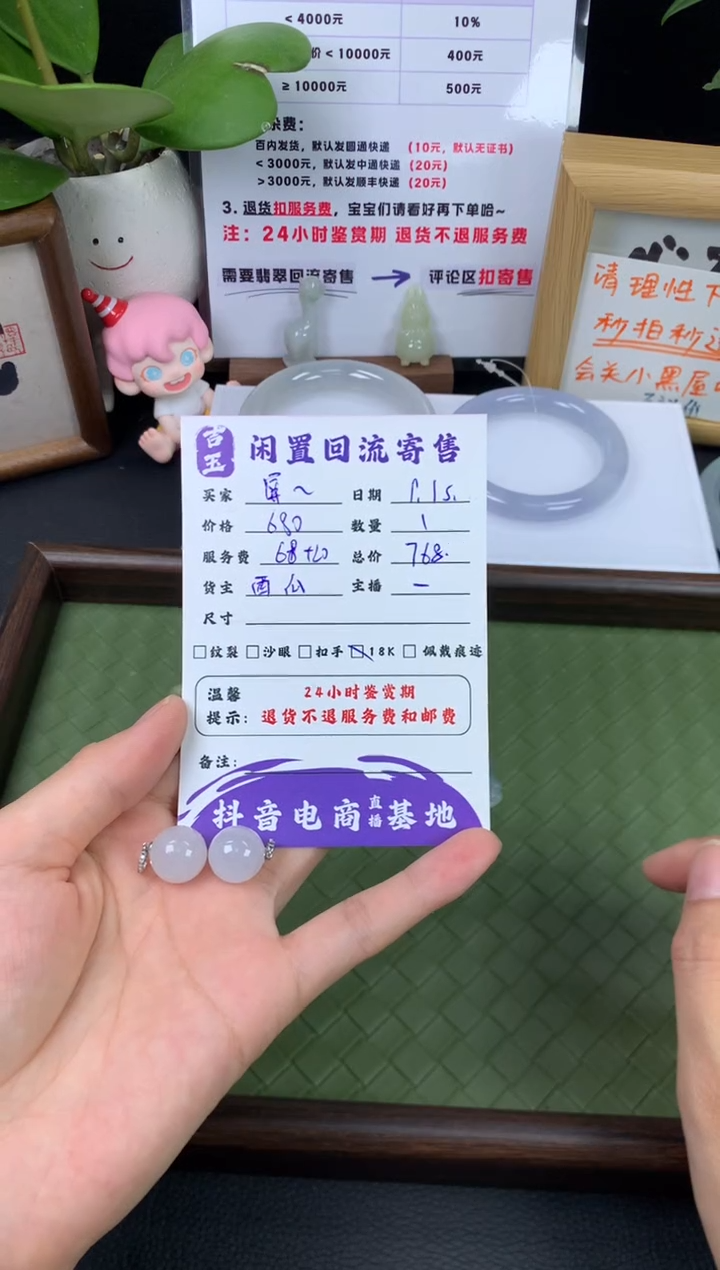 < 4000元 10%
价 < 10000元 400元
≥ 10000元 500元
杂费：
百内发货，默认发圆通快递 （10元，默认无证书）
< 3000元，默认发中通快递 （20元）
> 3000元，默认发顺丰快递 （20元）
3. 退货扣服务费，宝宝们请看好再下单哈~
注：24小时鉴赏期 退货不退服务费
需要翡翠回流寄售 → 评论区扣寄售
请理性下
秒拍秒退
会关小黑屋
吉玉 闲置回流寄售
买家 日期
价格 680 数量 1
服务费 68+20 总价 768.
货主 西瓜 主播 一
尺寸
□纹裂 □沙眼 □扣手 □18K □ 佩戴痕迹
温馨 24小时鉴赏期
提示：退货不退服务费和邮费
备注：
抖音电商直播基地